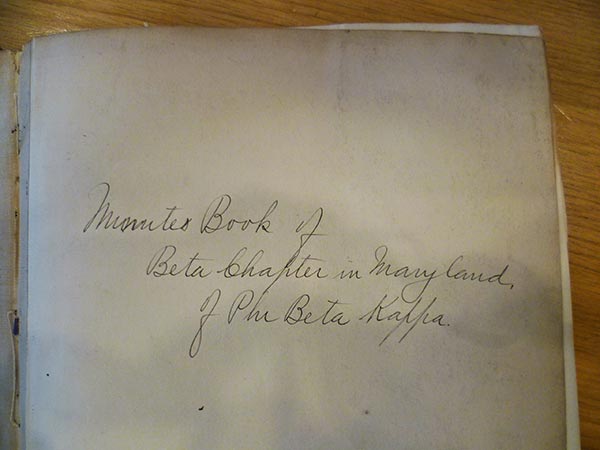 Minutes Book of
Beta Chapter in Maryland,
of Phi Beta Kappa.